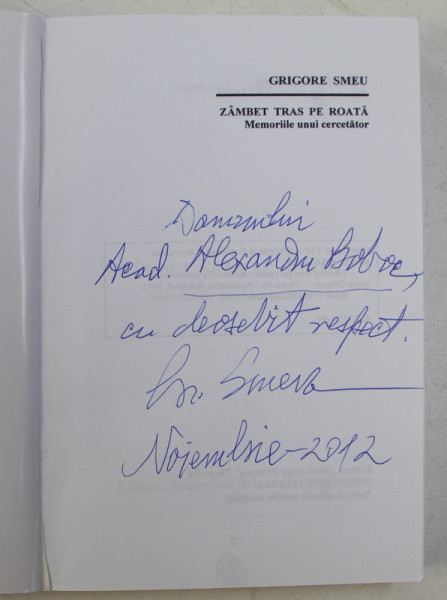 GRIGORE SMEU
ZÂMBET TRAS PE ROATĂ
Memoriile unui cercetător
Domnului
Acad. Alexandru Boboc,
cu deosebit respect.
Gr. Smeu
Noiembrie-2012